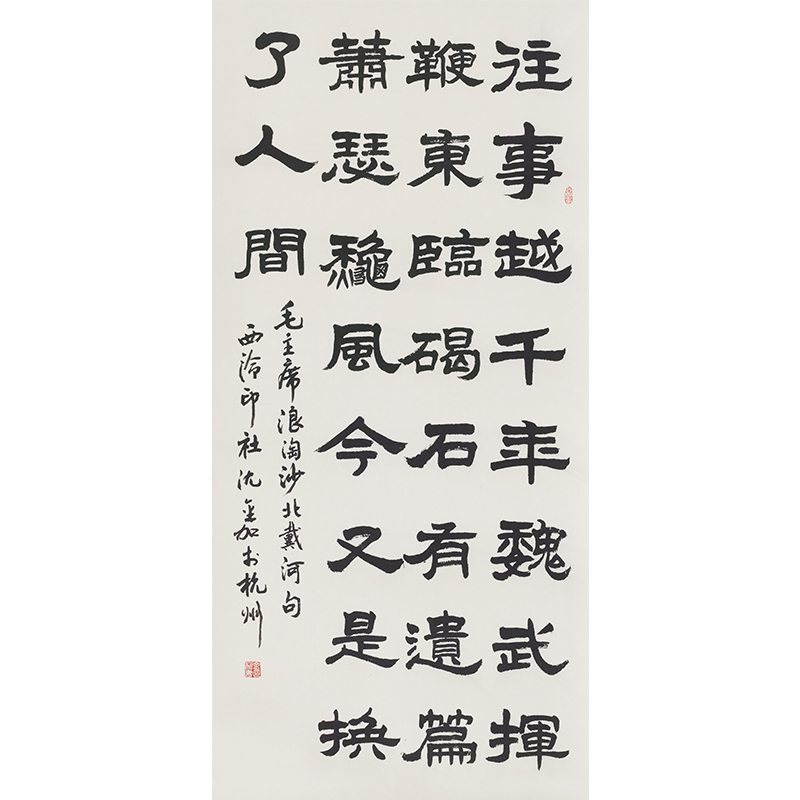 往事越千年魏武揮
鞭東臨碣石有遺篇
蕭瑟龝風今又是換
了人間
毛主席浪淘沙北戴河句
西泠印社沈金加於杭州